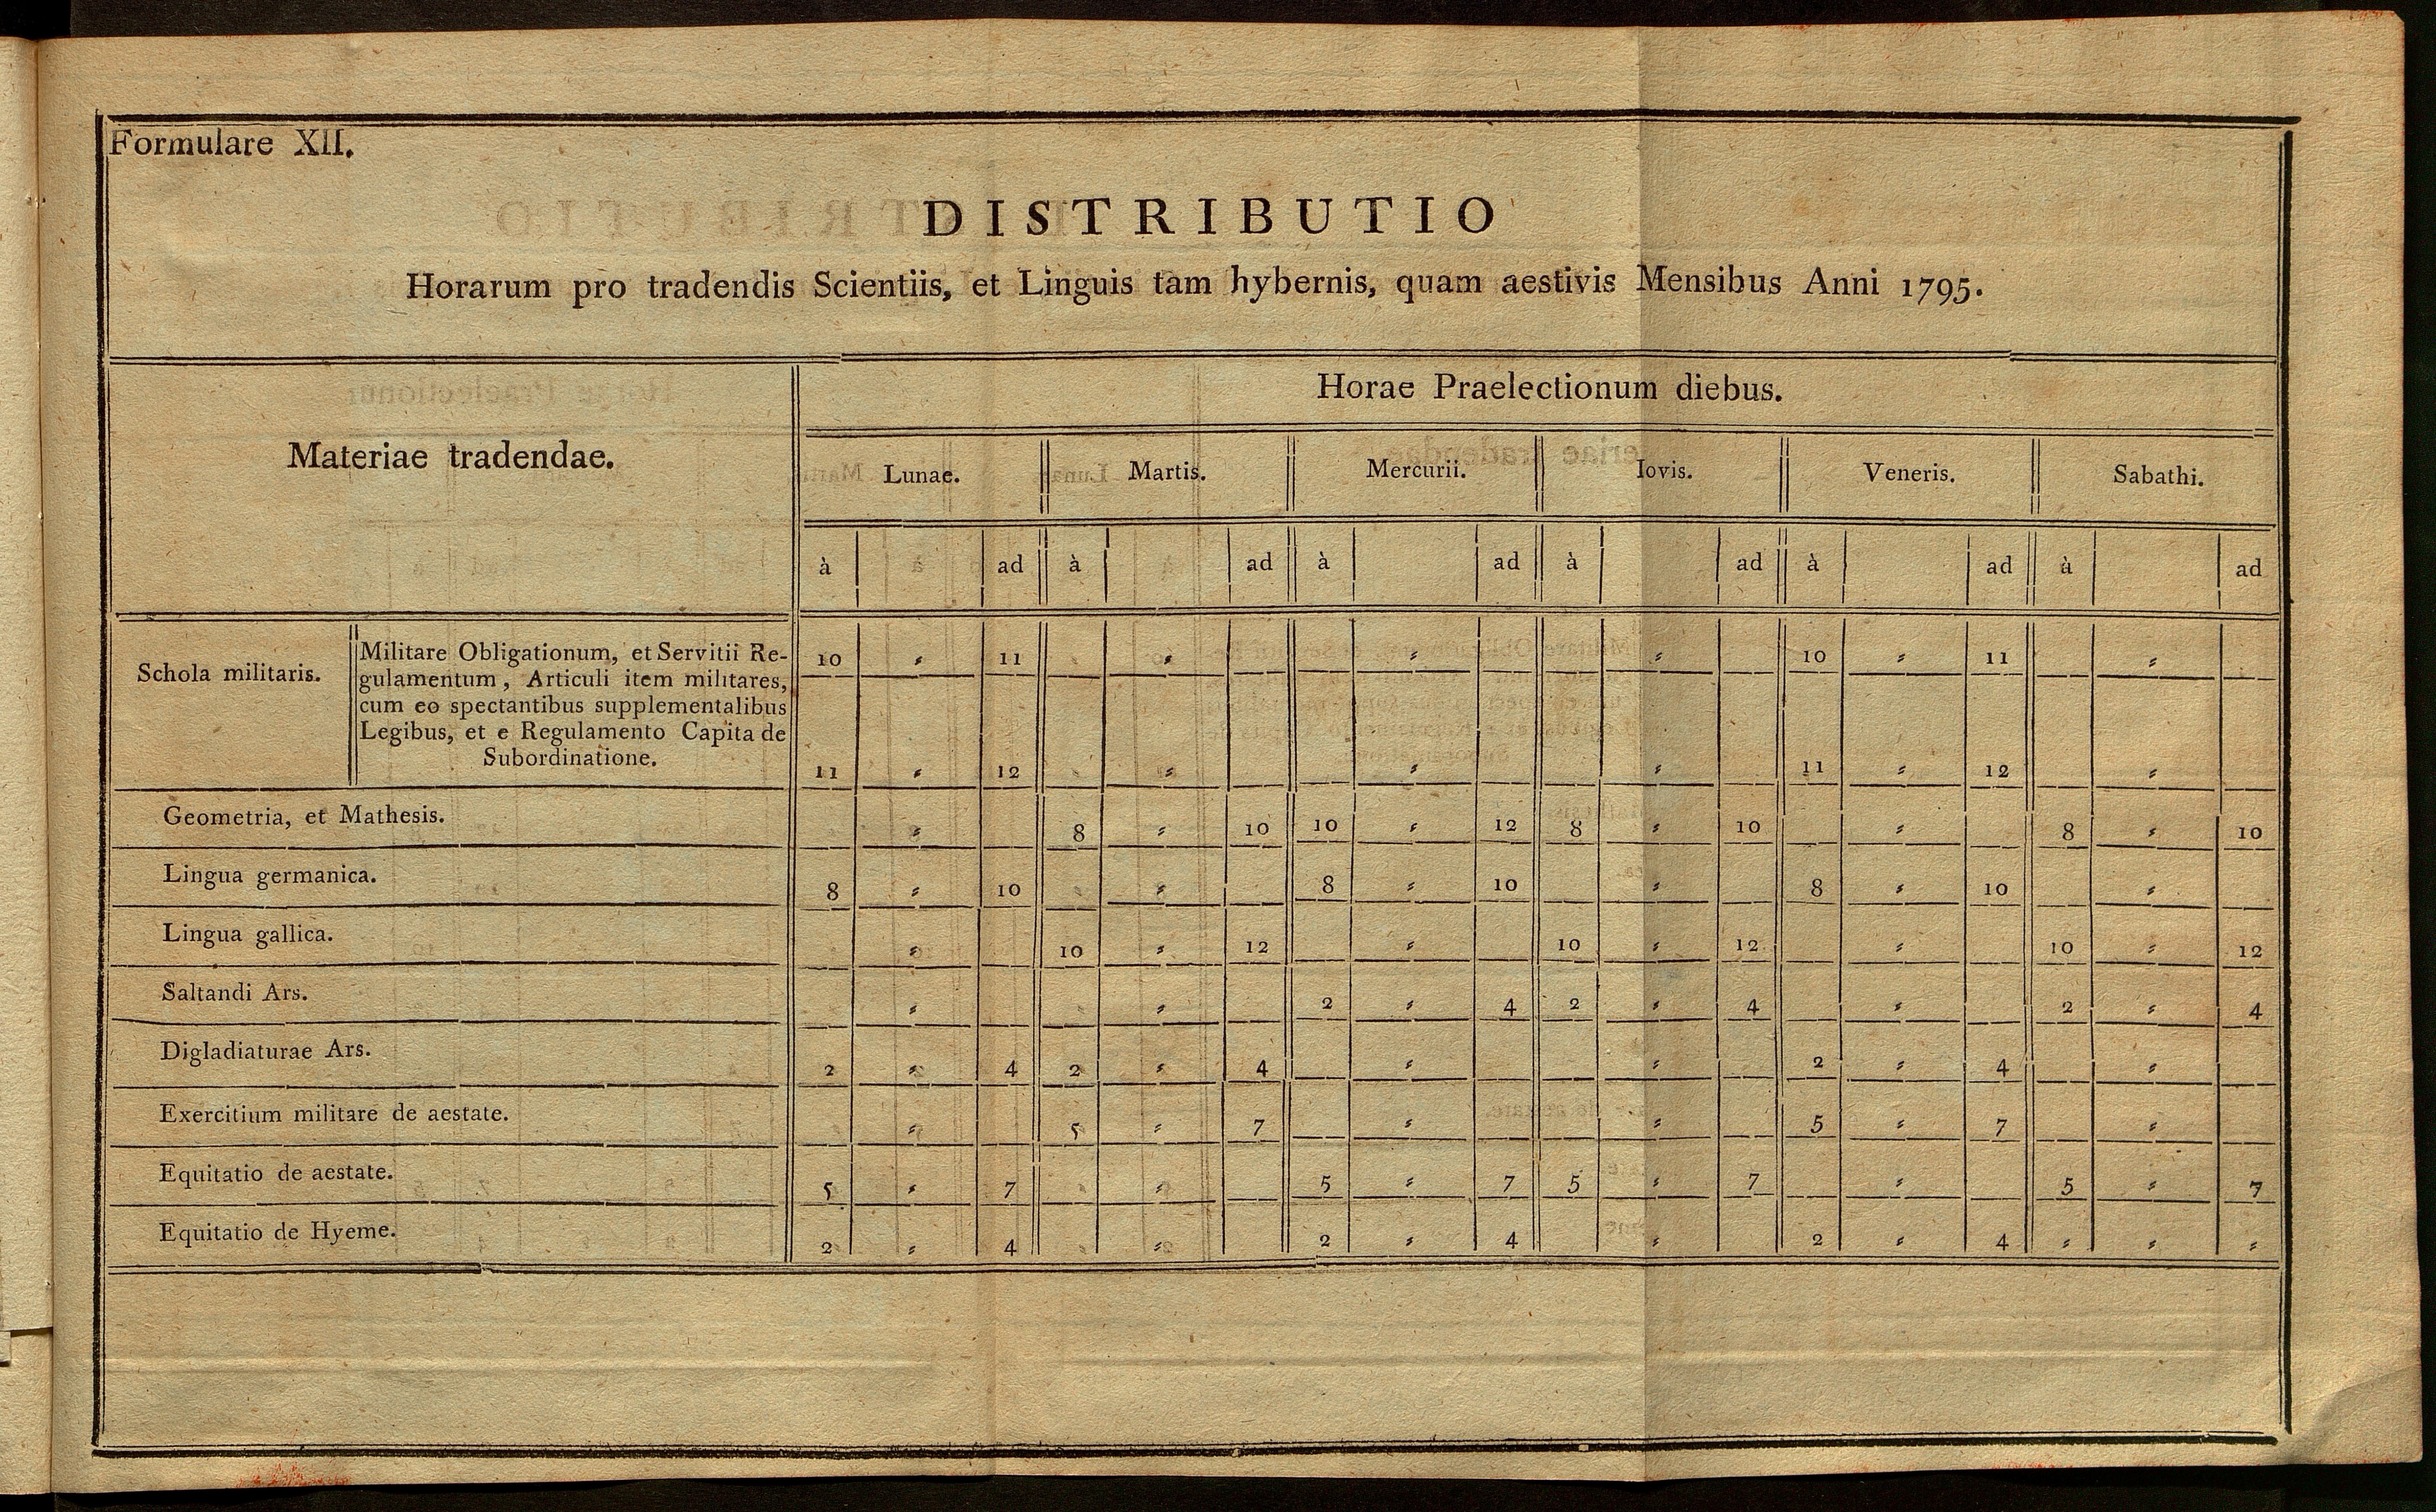 Formulare XII.
DISTRIBUTIO
Horarum pro tradendis Scientiis, et Linguis tam hybernis, quam aestivis Mensibus Anni 1795.
Materiae tradendae.
Horae Praelectionum diebus.
Lunae. Martis. Mercurii. Iovis. Veneris. Sabathi.
à ad à ad à ad à ad à ad à ad
Schola militaris.
Militare Obligationum, et Servitii Re-
gulamentum, Articuli item militares,
cum eo spectantibus supplementalibus
Legibus, et e Regulamento Capita de
Subordinatione.
10 " 11 " " " 10 " 11 "
11 " 12 " " " 11 " 12 "
Geometria, et Mathesis. " 8 " 10 10 " 12 8 " 10 " 8 " 10
Lingua germanica. 8 " 10 " 8 " 10 " 8 " 10 "
Lingua gallica. " 10 " 12 " 10 " 12 " 10 " 12
Saltandi Ars. " " 2 " 4 2 " 4 " 2 " 4
Digladiaturae Ars. 2 " 4 2 " 4 " " 2 " 4 "
Exercitium militare de aestate. " 5 " 7 " " 5 " 7 "
Equitatio de aestate. 5 " 7 " 5 " 7 5 " 7 " 5 " 7
Equitatio de Hyeme. 2 " 4 " 2 " 4 " 2 " 4 " " "